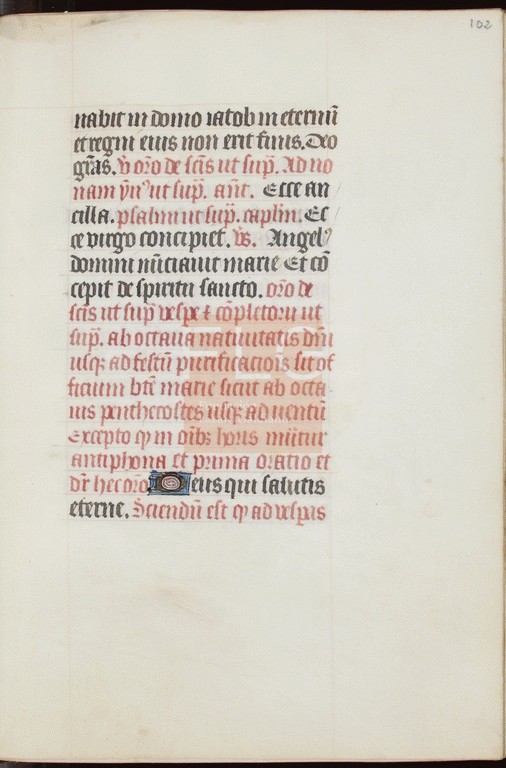 102
nabit in domo iacob in eternū
et regni eius non erit finis. Deo
grās. v̄ orō de scīs ut sup̄. Ad no
nam ꝟn̄ ut sup̄. anī. Ecce an
cilla. psalmi ut sup̄. caplm̄. Ec
ce virgo concipiet. vs̄. Angel⁹
domini nūciauit marie Et cō
cepit de spiritu sancto. orō de
scīs ut sup̄ vesꝑe ⁊ cōpletoriū ut
sup̄. ab octaua natiuitatis dn̄i
usqꝫ ad festū purificacioīs sit of
ficium btē marie sicut ab octa
uis penthecostes usqꝫ aduentū
Excepto ꝙ in oībꝫ horis mūtur
antiphona et prima oratio et
dr̄ hec orō Deus qui salutis
eterne. Sciendū est ꝙ ad vesꝑas